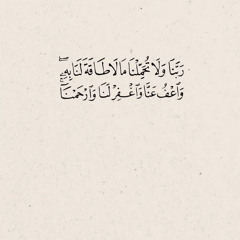 رَبَّنَا وَلَا تُحَمِّلْنَا مَا لَا طَاقَةَ لَنَا بِهِۦۖ
وَٱعْفُ عَنَّا وَٱغْفِرْ لَنَا وَٱرْحَمْنَآۚ